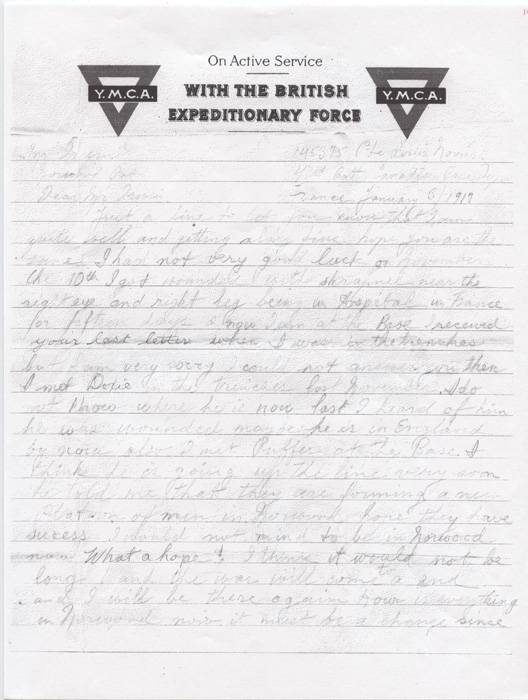 On Active Service
Y.M.C.A.
WITH THE BRITISH
EXPEDITIONARY FORCE
Y.M.C.A.
145395 Pte Louis Norris
Canadian
Dear Mr France January 3/1917
Just a line to let you know that I am
quite well and getting along fine hope you are the
same I had not very good luck on November
the 10th I got wounded with shrapnel near the
right eye and right leg being in Hospital in France
for fifteen days & now I am at the Base I received
your last letter when I was in the trenches
but I am very sorry I could not answer you then
I met Doxie in the trenches last November I do
not know where he is now last I heard of him
he was wounded maybe he is in England
by now also I met Puffer at the Base I
think he is going up the line very soon
he told me that they are forming a new
platoon of men in Norwood hope they have
sucess I would not mind to be in Norwood
now What a hope! I think it would not be
long and the war will come to a end
and I will be there again How is everything
in Norwood now it must be a change since